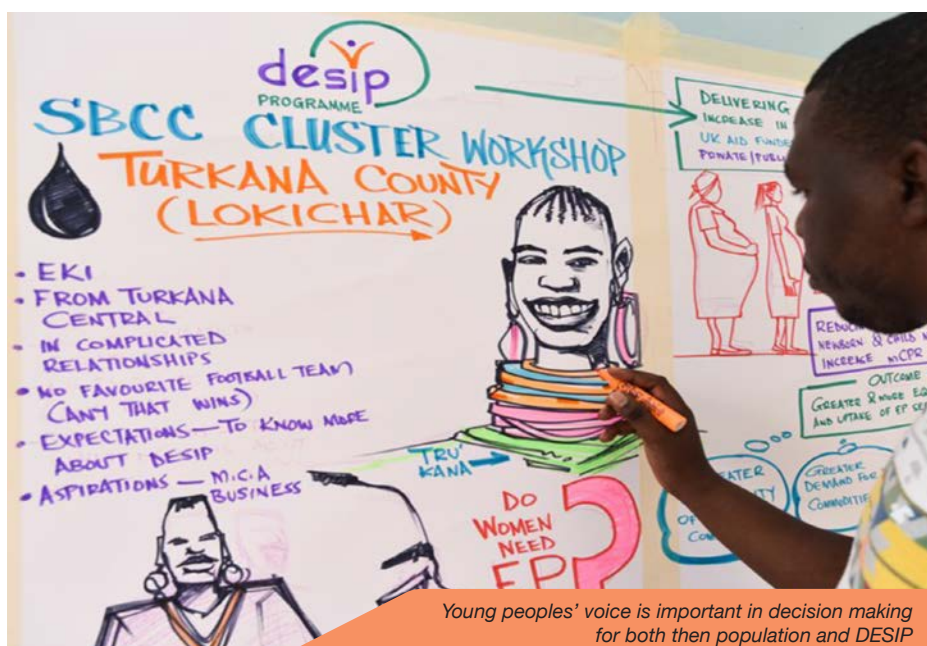 desip
PROGRAMME
SBCC CLUSTER WORKSHOP
TURKANA COUNTY
(LOKICHAR)
• EKI
• FROM TURKANA
CENTRAL
• IN COMPLICATED
RELATIONSHIPS
• NO FAVOURITE FOOTBALL TEAM
(ANY THAT WINS)
• EXPECTATIONS — TO KNOW MORE
ABOUT DESIP
• ASPIRATIONS — M.C.A
BUSINESS
TRU'
KANA
DO
WOMEN
NEED
FP?
DELIVERING
INCREASE IN
UK AID FUNDE
PRIVATE/PUBLI
REDUC
NEWBORN & CHILD M
INCREASE mCPR
OUTCOME
GREATER & MORE EQ
AND UPTAKE OF FP SE
EATER
ITY
OF
CO
GREATER
DEMAND FOR
COMMODITIE
Young peoples' voice is important in decision making
for both then population and DESIP